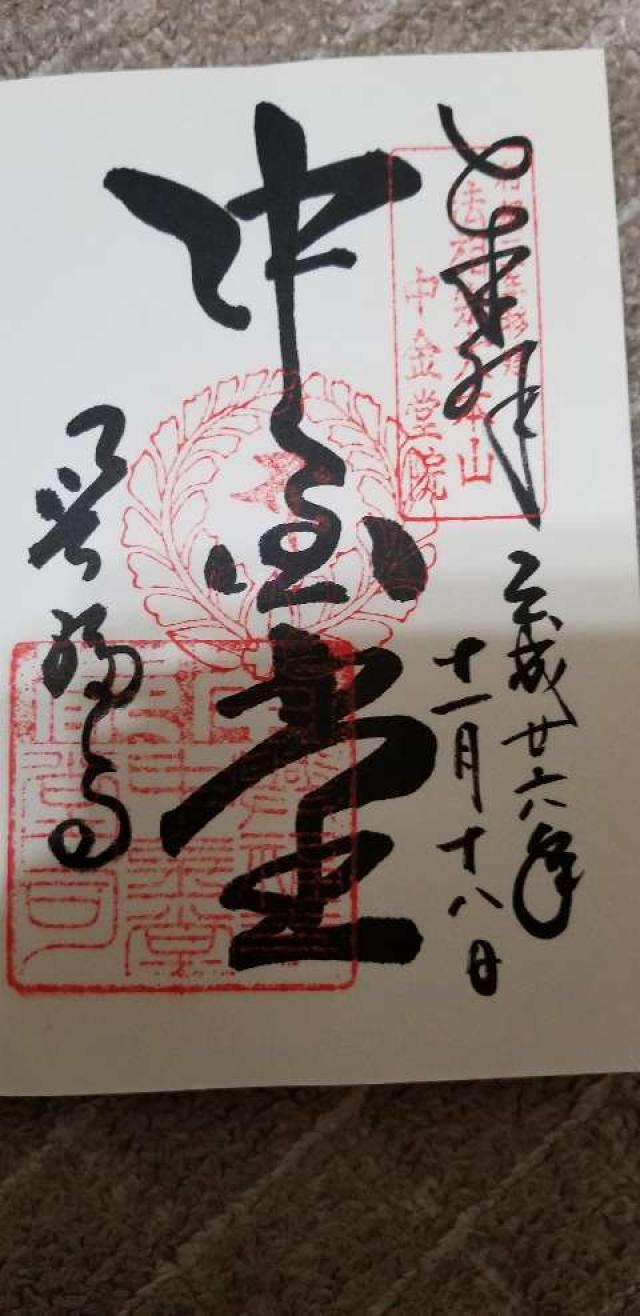 奉拝
平成廿六年
十一月十八日
法相宗大本山
中金堂院
中金堂
興福寺